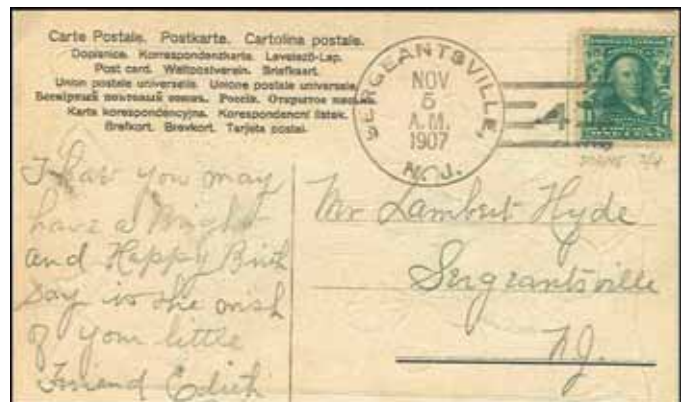 Carte Postale. Postkarte. Cartolina postale.
Dopisnice. Korrespondenzkarte. Levelező-Lap.
Post card. Weltpostverein. Briefkaart.
Union postale universelle. Unione postale universale.
Всемірный почтовый союзъ. Россія. Открытое письмо.
Karta korespondencyjna. Korespondencni listek.
Brefkort. Brevkort. Tarjeta postal.
SERGEANTSVILLE,
NOV
5
A.M.
1907
N.J.
4
I haw you may
have a Bright
and Happy Birth
Day is the wish
of your little
Friend Edith
Mr Lambert Hyde
Sergeantsville
N.J.